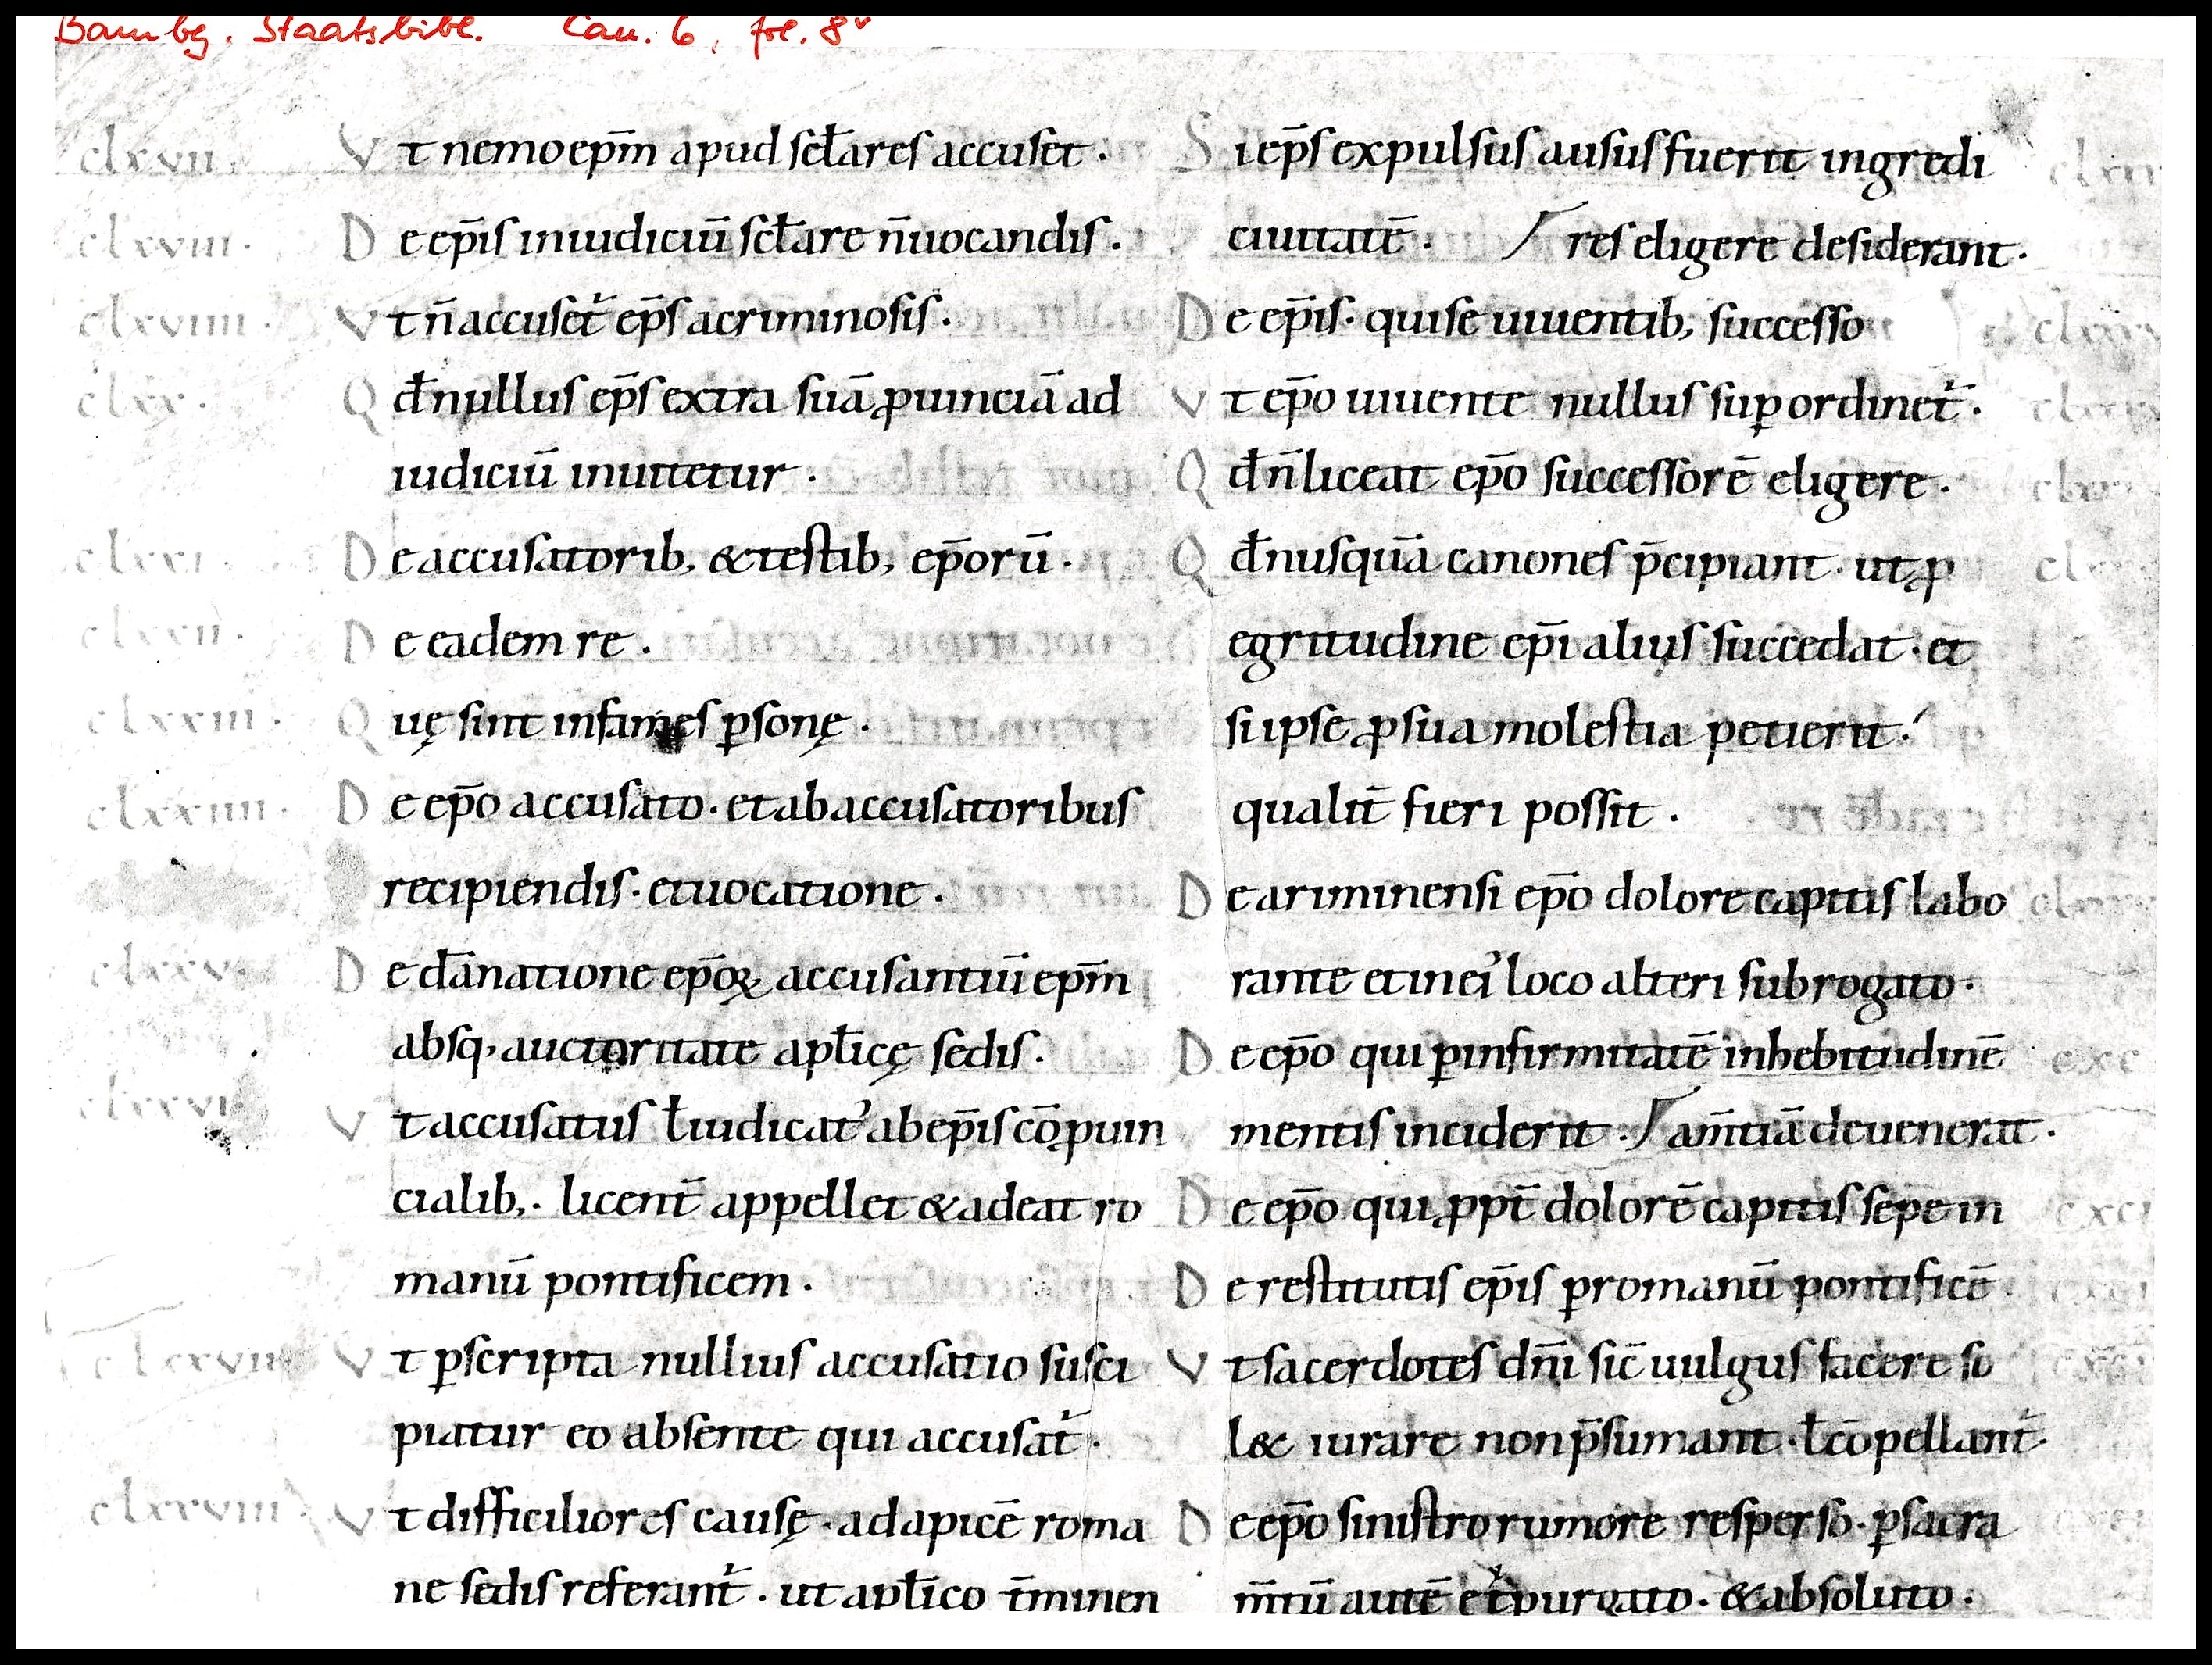 Bambg. Staatsbibl. Can. 6, fol. 8v
clxvii. Vt nemo ep̄m apud scł̄ares accuset.
clxviii. De ep̄is in iudiciū scł̄are n̄ uocandis.
clxviiii. Vt n̄ accuset᷑ ep̄s a criminosis.
clxx. Qđ nullus ep̄s extra suā ꝓuinciā ad
iudiciū inuitetur.
clxxi. De accusatorib; & testib; ep̄orū.
clxxii. De eadem re.
clxxiii. Quę sint infames ꝑsonę.
clxxiiii. De ep̄o accusato. et ab accusatoribus
recipiendis. et uocatione.
clxxv. De dānatione ep̄oꝝ accusantiū ep̄m
absq; auctoritate apłicę sedis.
clxxvi. Vt accusatus ł iudicatꝰ ab ep̄is cōꝓuin
cialib;. licent̄ appellet & adeat ro
manū pontificem.
clxxvii. Vt ꝑ scripta nullius accusatio susci
piatur eo absente qui accusat᷑.
clxxviii. Vt difficiliores causę. ad apicē roma
ne sedis referant᷑. ut apłico t̄minen
Si ep̄s expulsus ausus fuerit ingredi
ciuitatē. res eligere desiderant.
De ep̄is. qui se uiuentib; successo
Vt ep̄o uiuente nullus suꝑordinet᷑.
Qđ n̄ liceat ep̄o successorē eligere.
Qđ nusquā canones p̄cipiant. ut ꝓ
egritudine ep̄i alius succedat. et
si ipse ꝓ sua molestia petierit.
qualit̄ fieri possit.
De ariminensi ep̄o dolore capitis labo
rante et in eiꝰ loco alteri subrogato.
De ep̄o qui ꝑ infirmitatē in hebitudinē
mentis inciderit. am̄tiā deuenerat.
De ep̄o qui ꝓpt̄ dolorē capitis sepe in
De restitutis ep̄is ꝑ romanū pontificē.
Vt sacerdotes dn̄i sic̄ uulgus facere so
l& iurare non p̄sumant. ł cōpellant᷑.
De ep̄o sinistro rumore resperso. ꝑ sacra
m̄tū autē expurgato. & absoluto.